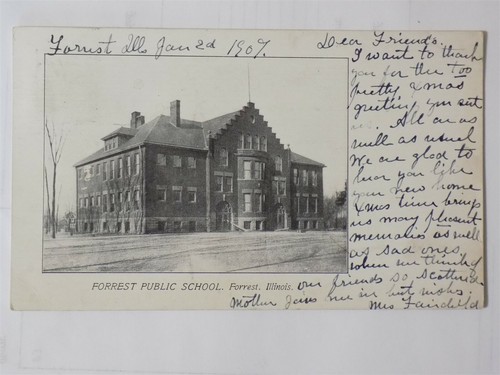 Forrest Ills Jan 2d 1907.
Dear Friends.
I want to thank
you for the too
pretty Xmas
greeting you sent
us. All are as
well as usual
We are glad to
hear you like
your new home
Xmas time brings
us many pleasent
memories as well
as sad ones,
when we think of
our friends so scattered
Mother joins me in best wishes.
Mrs Fairchild
FORREST PUBLIC SCHOOL. Forrest, Illinois.